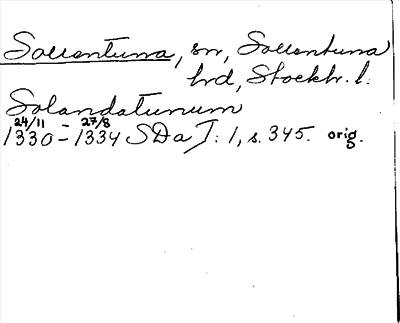 Sollentuna, sn, Sollentuna
hrd, Stockh. l.
Solandatunum
24/11 - 27/8
1330 - 1334 SDa I: 1, s. 345. orig.